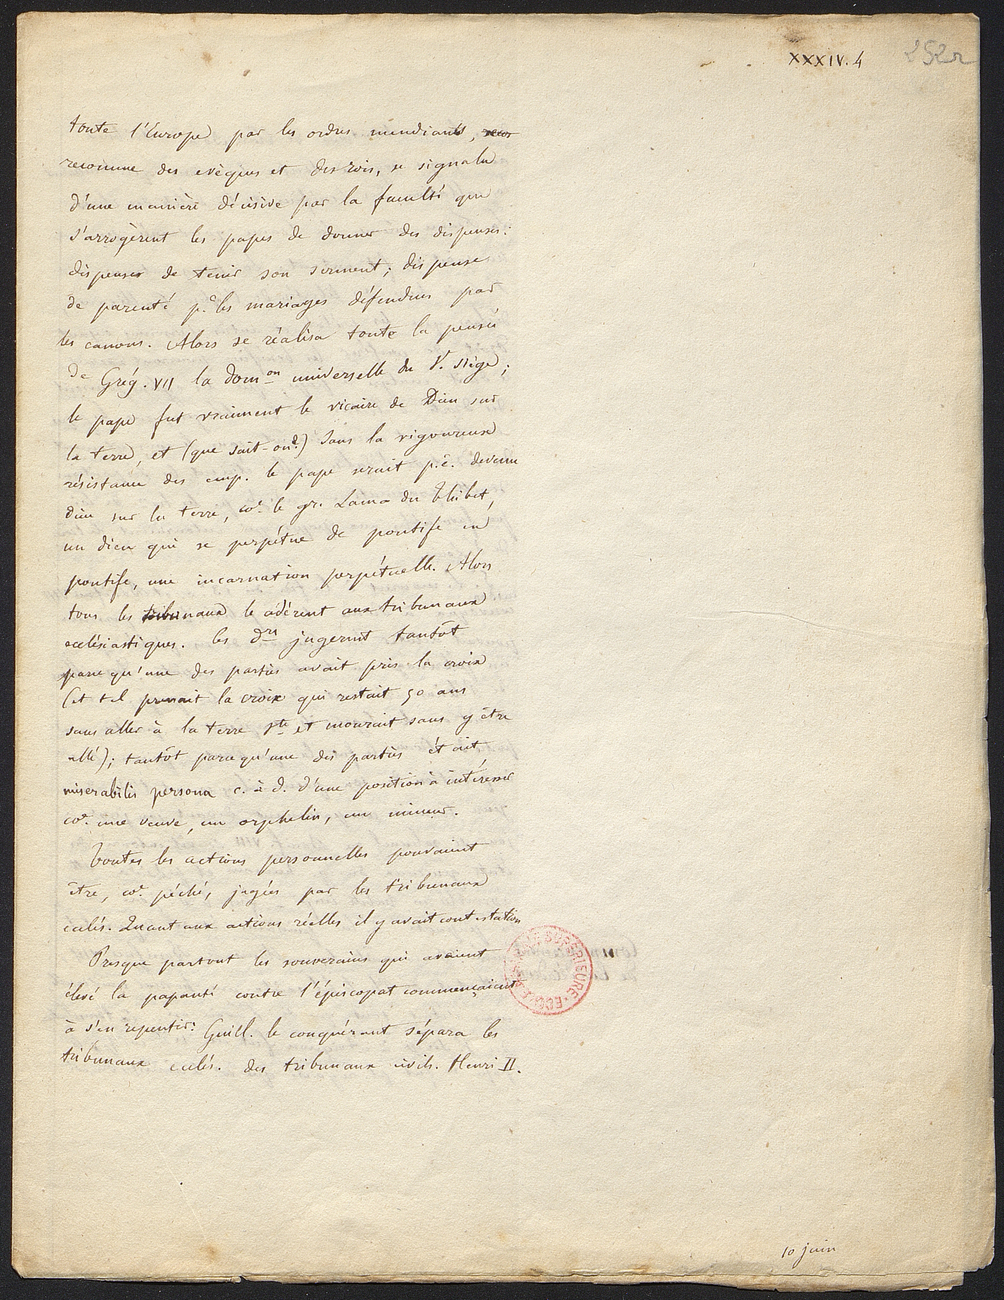 XXXIV. 4
252r
toute l'Europe par les ordres mendiants,
reconnue des evêques et des rois, se signala
d'une manière décisive par la faculté que
s'arrogèrent les papes de donner des dispenses:
dispenses de tenir son serment; dispenses
de parenté pr les mariages défendus par
les canons. Alors se réalisa toute la pensée
de Grég. VII la domon universelle du St. Siège;
le pape fut vraiment le vicaire de Dieu sur
la terre, et (que sait-on?) sans la rigoureuse
résistance des emp. le pape serait p.ê. devenu
dieu sur la terre, coe le gr. Lama du Thibet,
un dieu qui se perpétue de pontife en
pontife, une incarnation perpétuelle. Alors
tous les tribunaux le cédèrent aux tribunaux
ecclésiastiques. les drs jugerent tantôt
parce qu'une des parties avait pris la croix
(et tel prenait la croix qui restait 50 ans
sans aller à la terre ste et mourait sans y être
allé); tantôt parce qu'une des parties était
miserabilis persona c. à d. d'une position à intéresser
coe une veuve, un orphelin, un mineur.
Toutes les actions personnelles pouvaient
être, coe péché, jugées par les tribunaux
eclés. Quant aux actions réelles il y avait contestation
Presque partout les souverains qui avaient
élevé la papauté contre l'épiscopat commençaient
à s'en repentir: Guill. le conquérant sépara les
tribunaux eclés. des tribunaux civils. Henri II.
10 juin